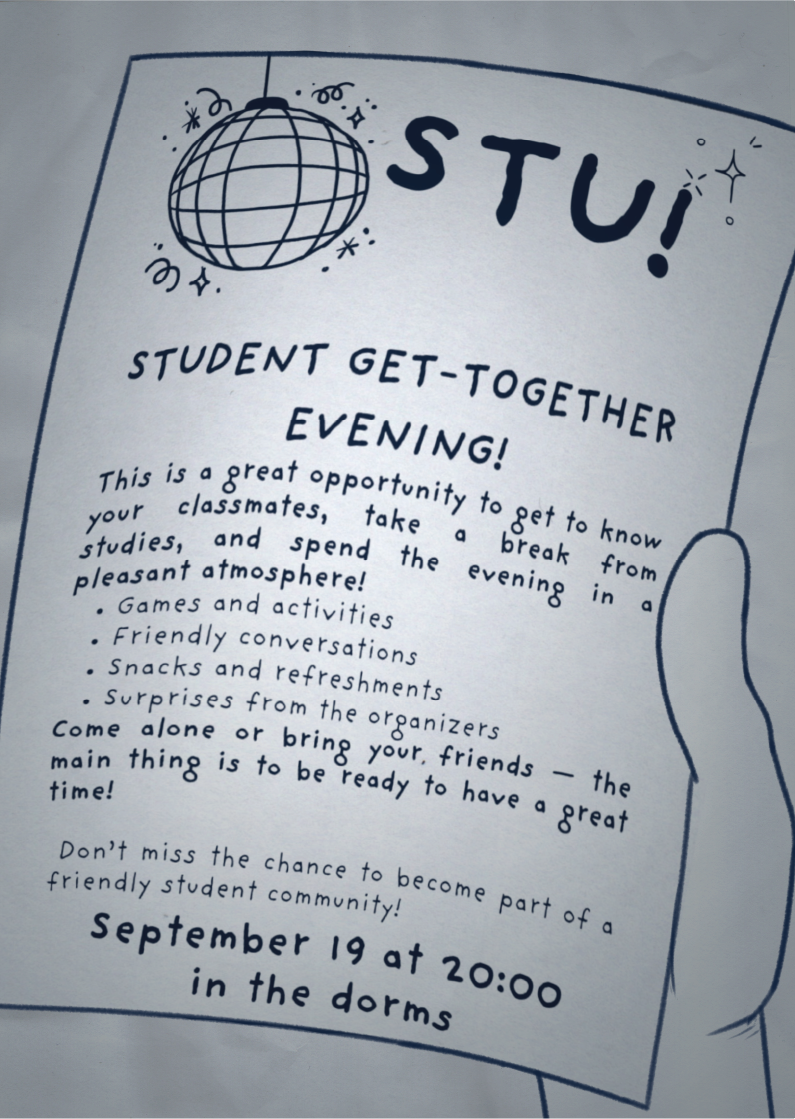 STU!
STUDENT GET-TOGETHER
EVENING!
This is a great opportunity to get to know
your classmates, take a break from
studies, and spend the evening in a
pleasant atmosphere!
• Games and activities
• Friendly conversations
• Snacks and refreshments
• Surprises from the organizers
Come alone or bring your friends — the
main thing is to be ready to have a great
time!
Don't miss the chance to become part of a
friendly student community!
September 19 at 20:00
in the dorms